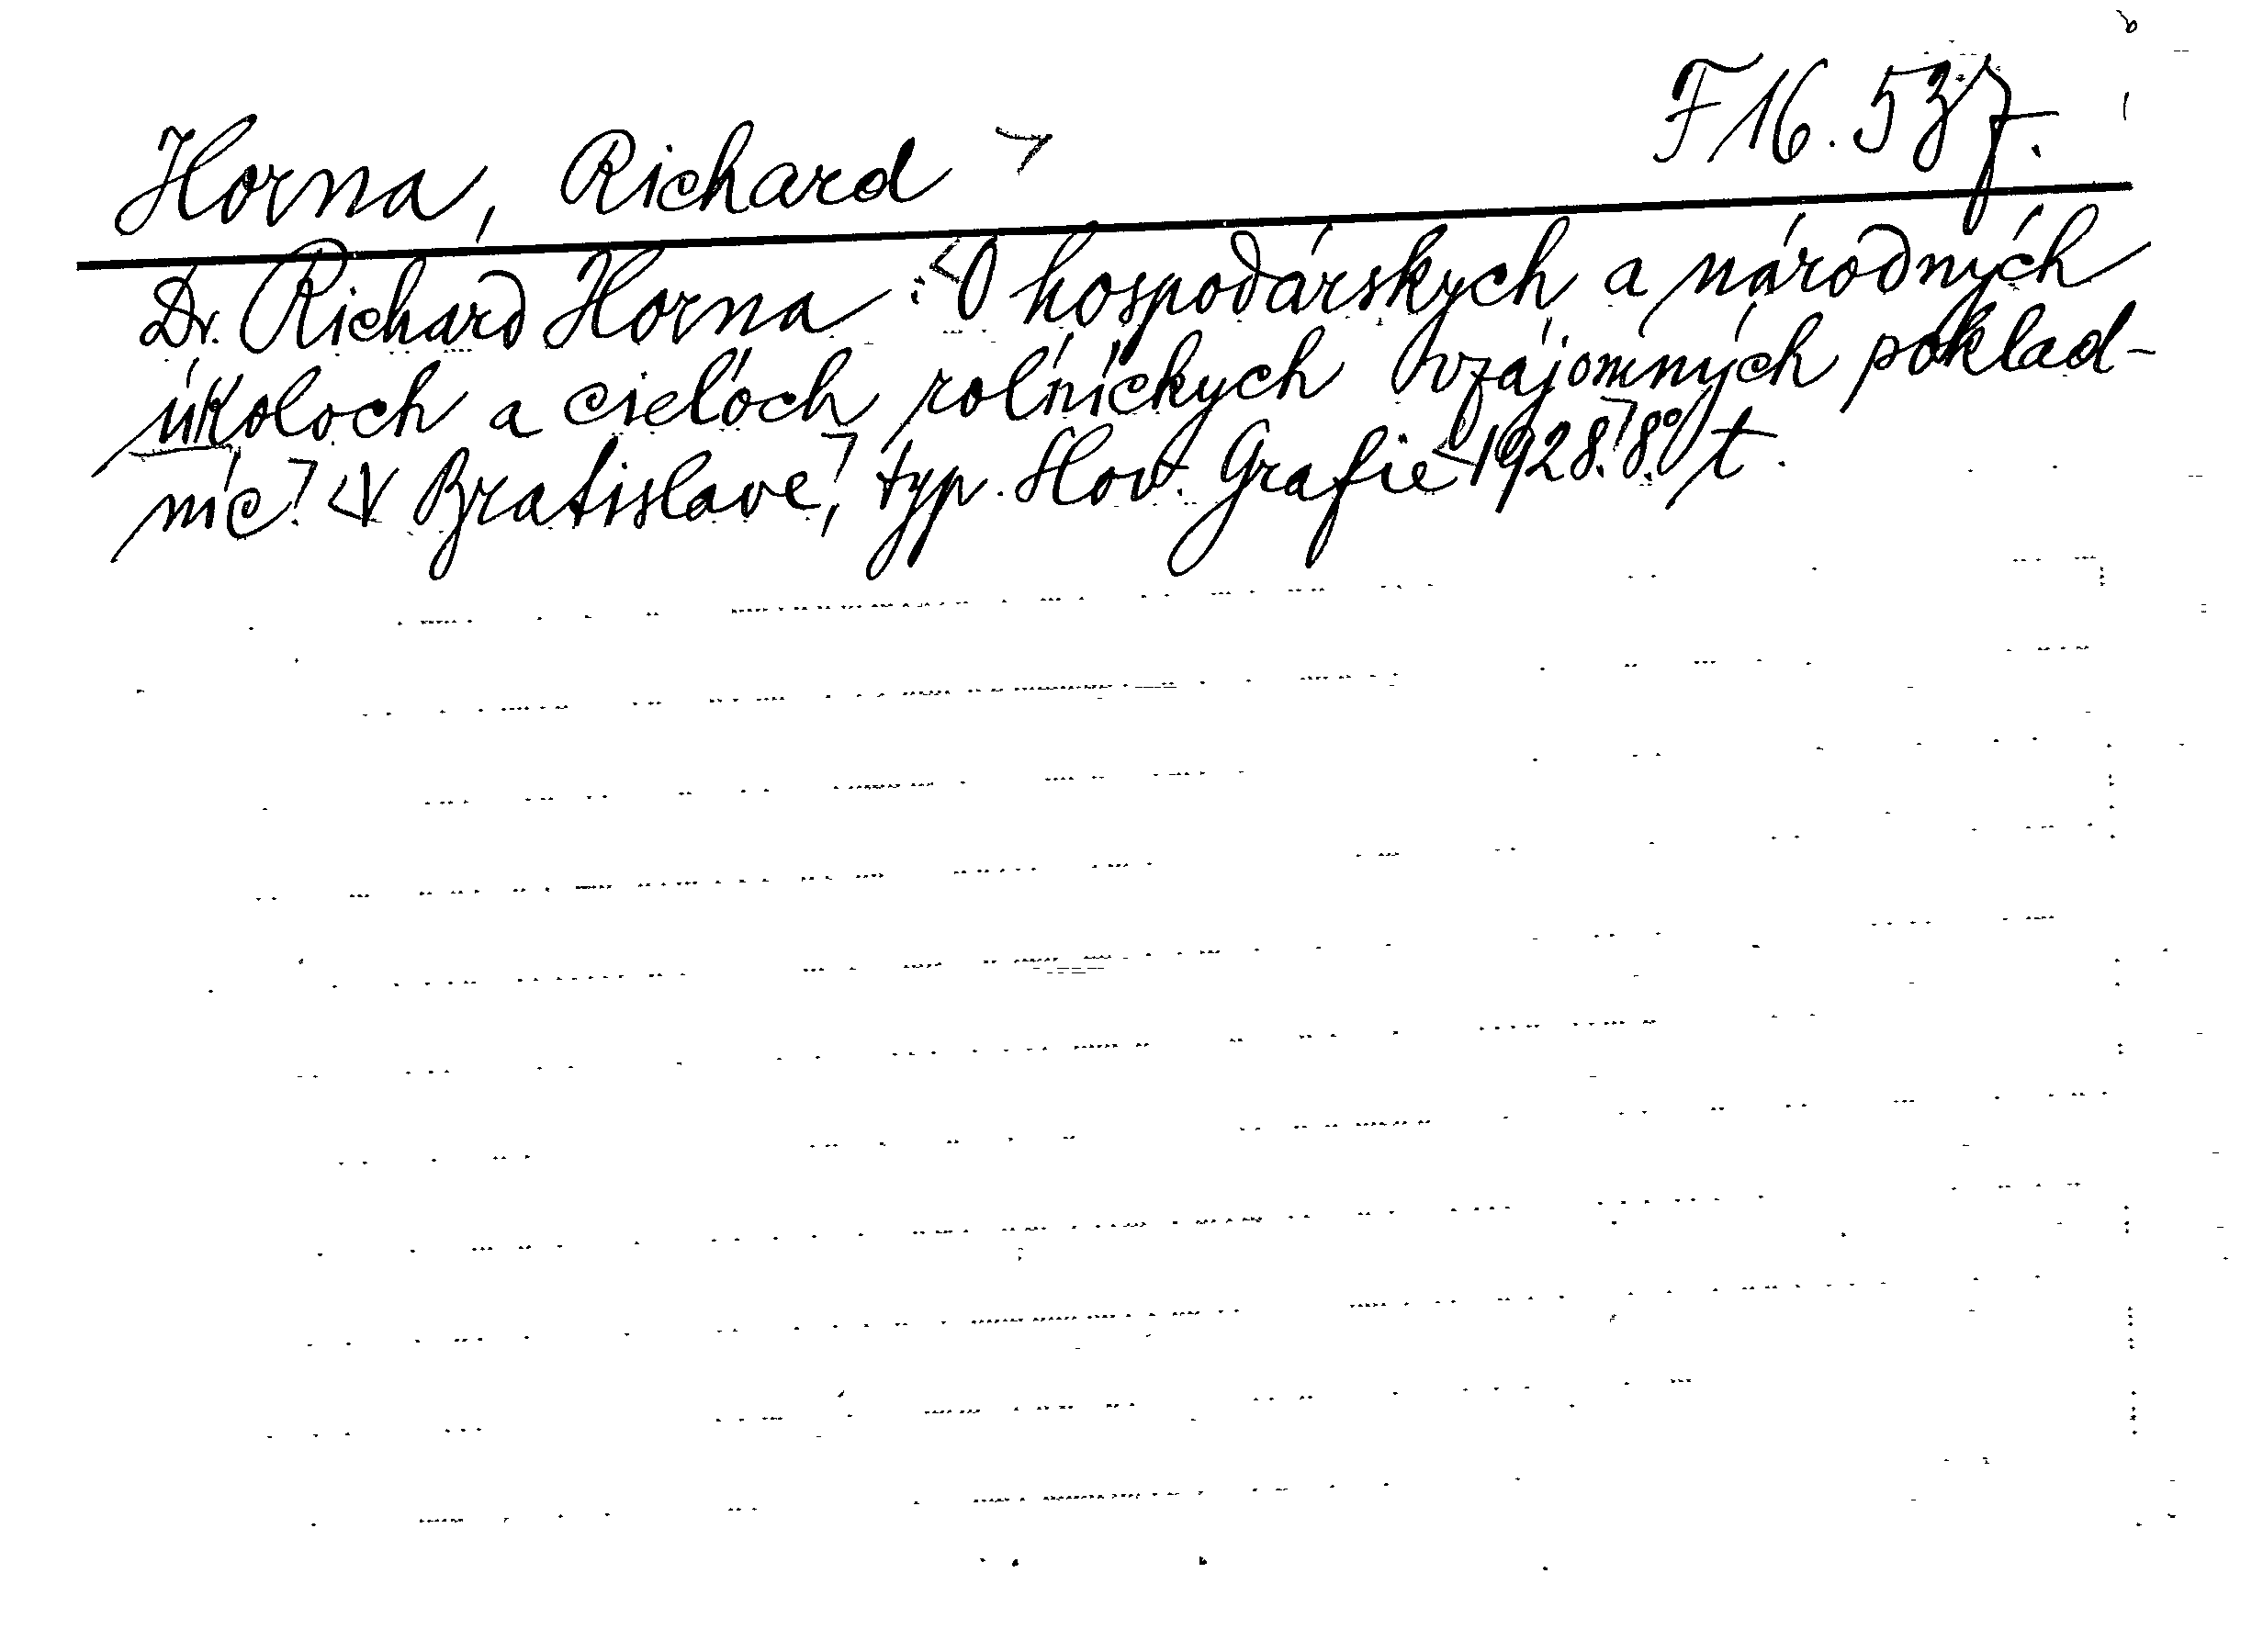 Horna, Richard F 16.537.
Dr. Richard Horna: O hospodárskych a národných
úkoloch a cieľoch roľníckych vzájomných poklad-
níc. V Bratislave, typ. Slov. Grafie 1928. 8° t.